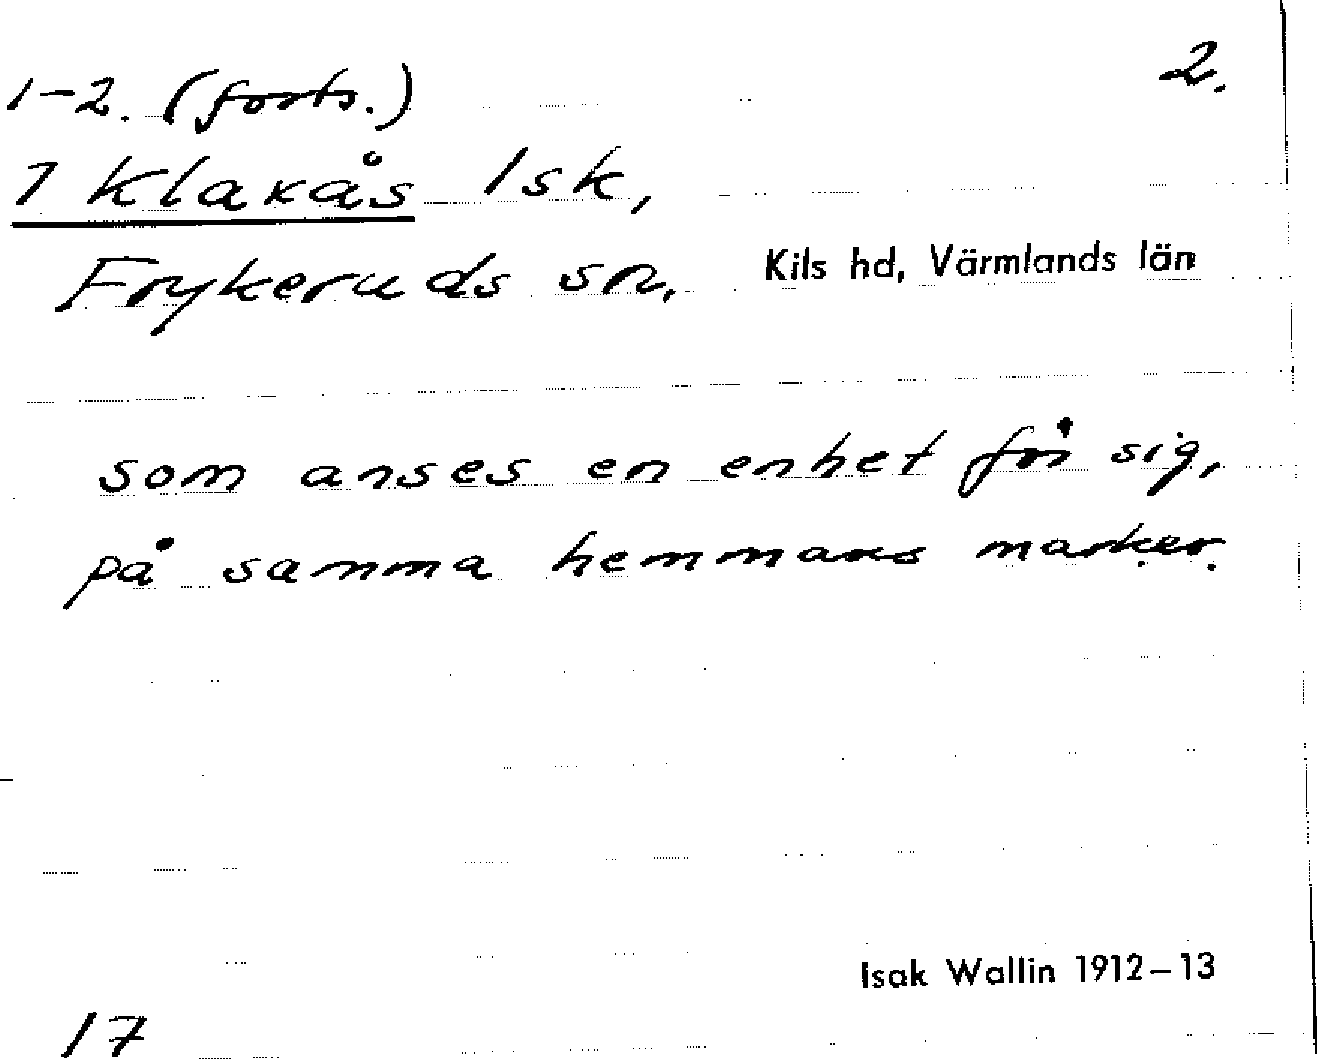 1-2. (forts.) 2.
1 Klaxås 1sk,
Frykeruds sn, Kils hd, Värmlands län
som anses en enhet för sig,
på samma hemmans marker.
Isak Wallin 1912-13
17